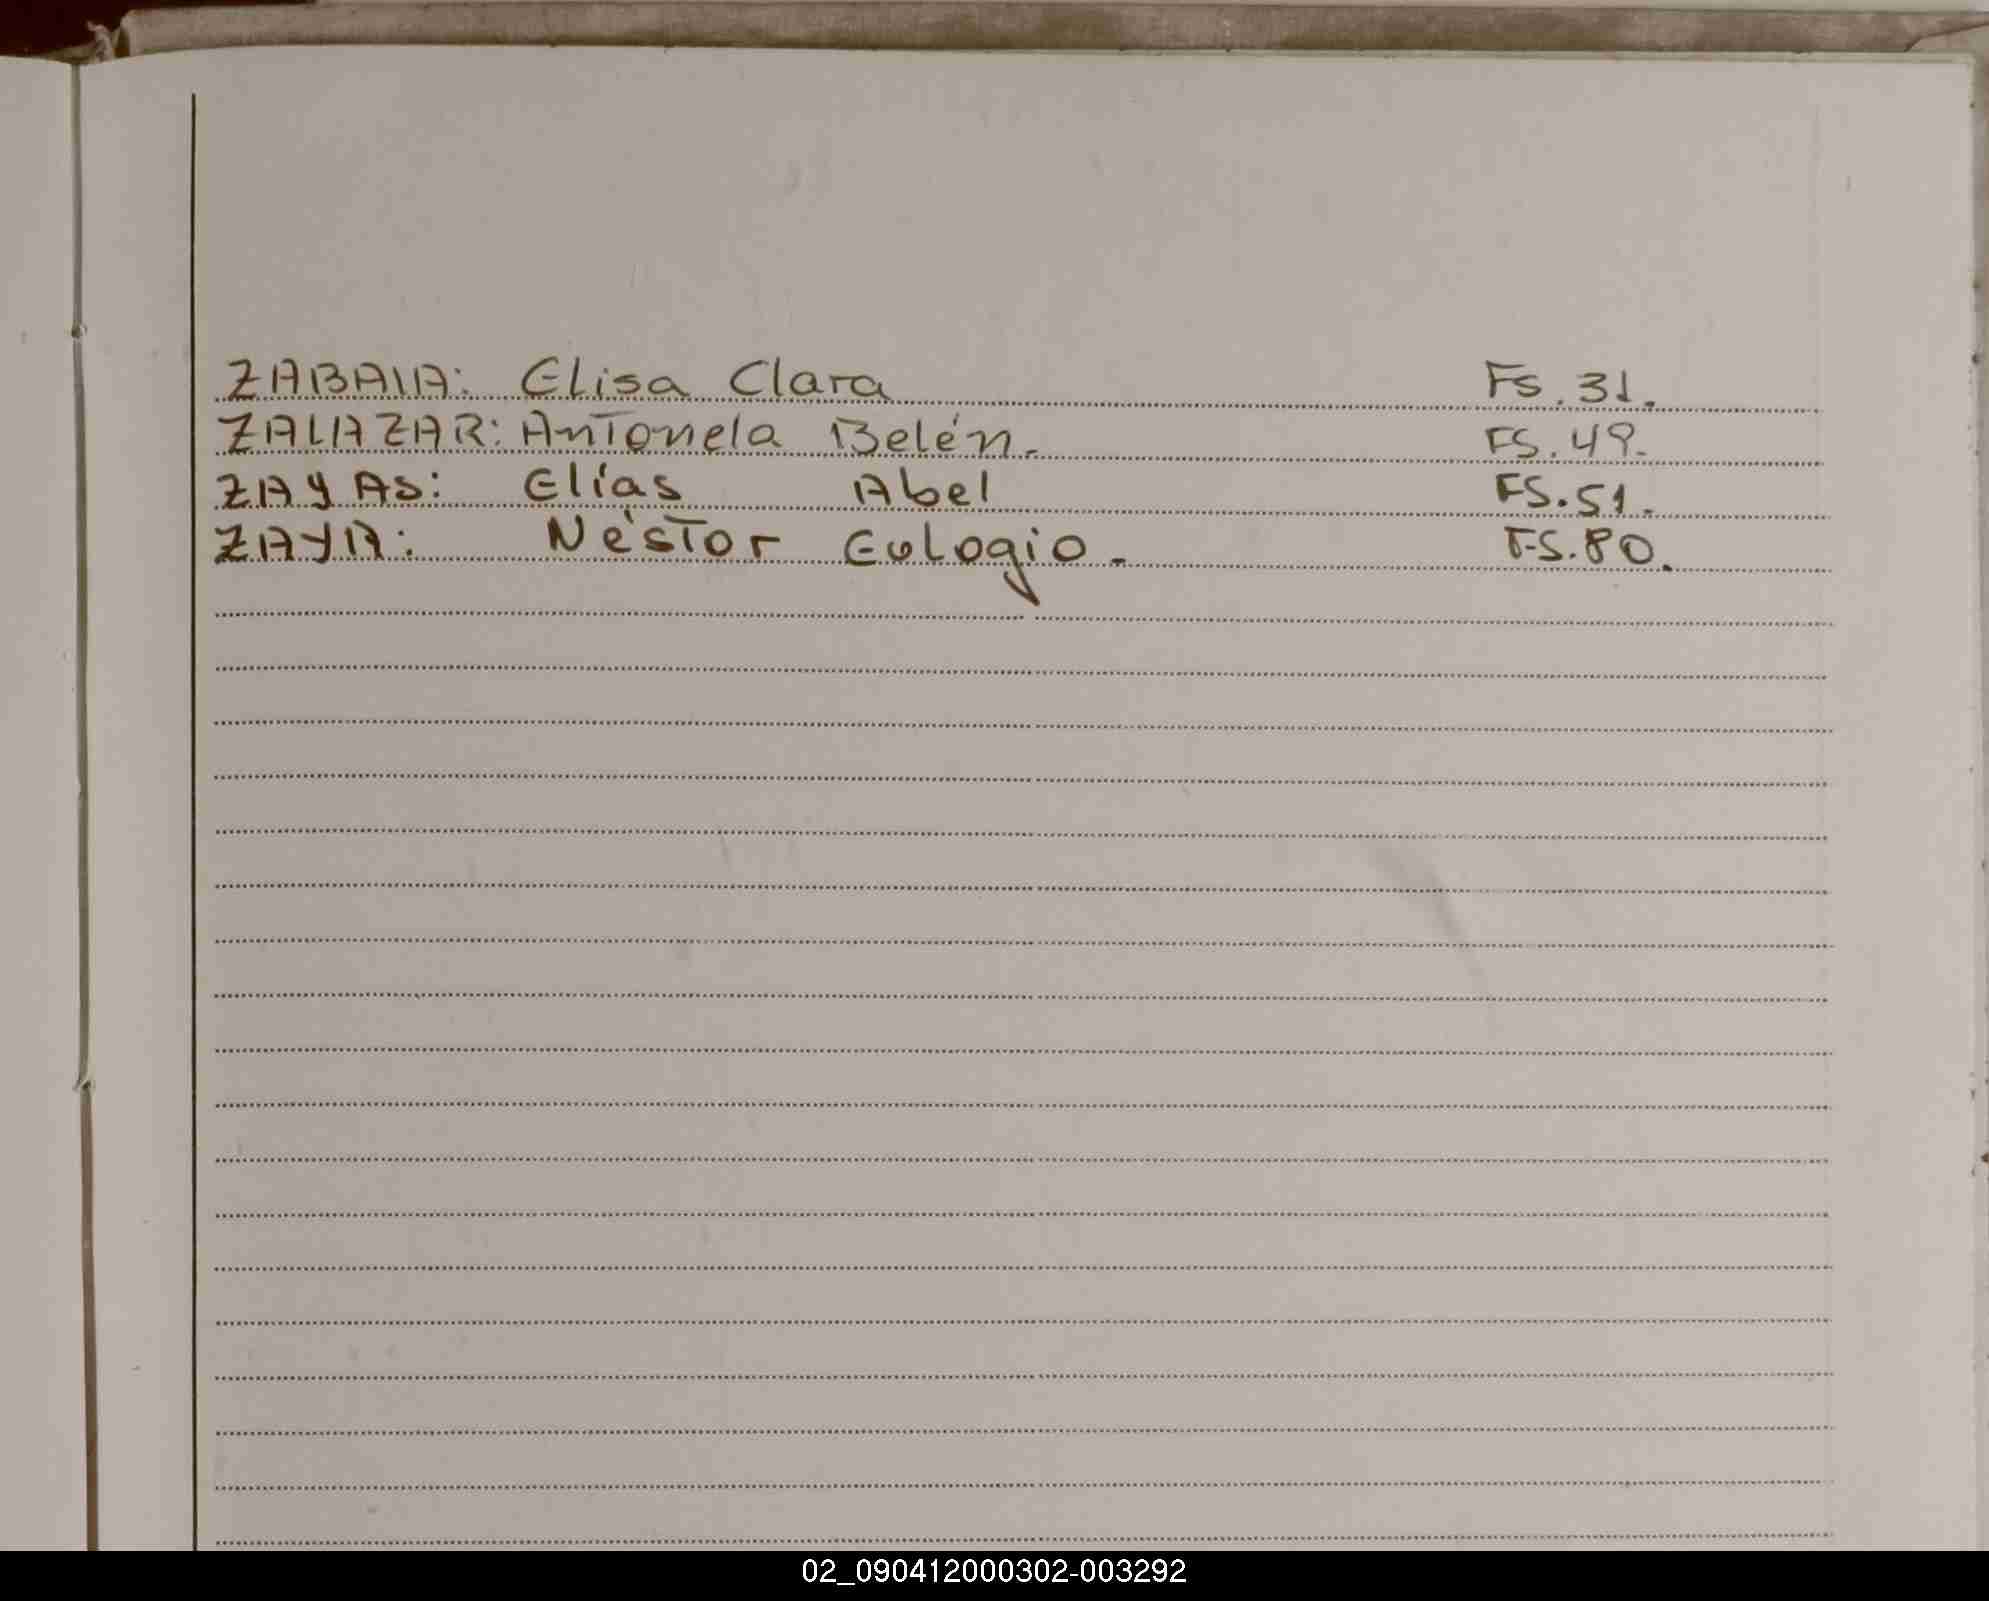 ZABALA: Elisa Clara Fs. 31.
ZALAZAR: Antonela Belén. FS. 49.
ZAYAS: Elías Abel FS. 51.
ZAYA: Néstor Eulogio. FS. 80.
02_090412000302-003292